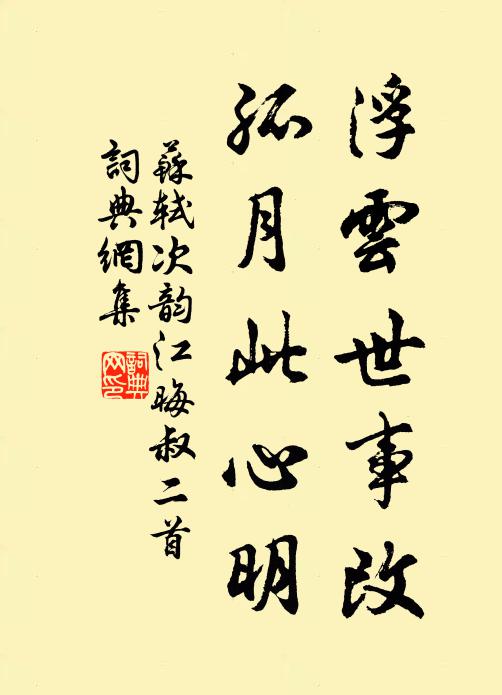 浮雲世事改
孤月此心明
蘇軾次韵江晦叔二首
詞典網集
詞典網印